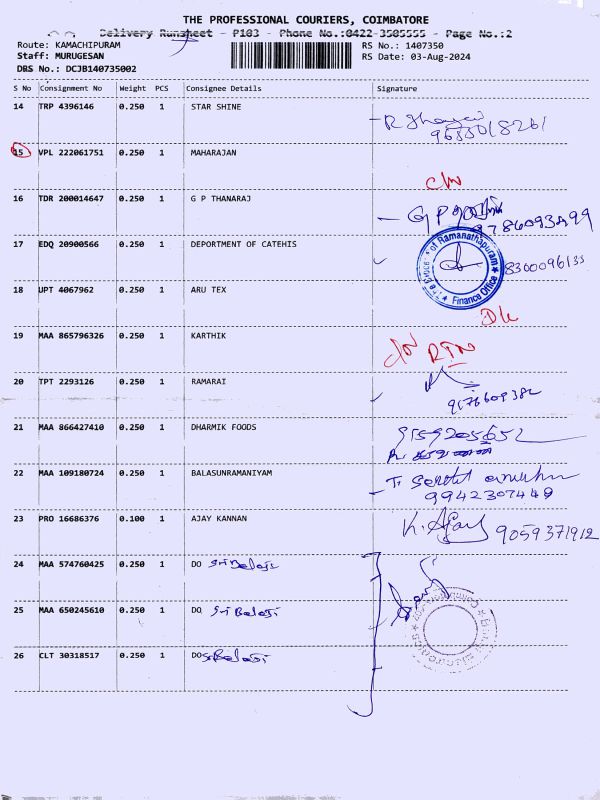 THE PROFESSIONAL COURIERS, COIMBATORE
Delivery Runsheet - P103 - Phone No.:0422-3505555 - Page No.:2
Route: KAMACHIPURAM RS No.: 1407350
Staff: MURUGESAN RS Date: 03-Aug-2024
DRS No.: DCJB140735002
S No Consignment No Weight PCS Consignee Details Signature
14 TRP 4396146 0.250 1 STAR SHINE
15 VPL 222061751 0.250 1 MAHARAJAN
16 TDR 200014647 0.250 1 G P THANARAJ G P
17 EDQ 20900566 0.250 1 DEPORTMENT OF CATEHIS of Ramanathapuram Finance Office
18 UPT 4067962 0.250 1 ARU TEX
19 MAA 865796326 0.250 1 KARTHIK RTN
20 TPT 2293126 0.250 1 RAMARAI
21 MAA 866427410 0.250 1 DHARMIK FOODS 9159205652
22 MAA 109180724 0.250 1 BALASUNRAMANIYAM
9942307449
23 PRO 16686376 0.100 1 AJAY KANNAN K. Ajay 9059371912
24 MAA 574760425 0.250 1 DO Sri Balaji
25 MAA 650245610 0.250 1 DO Sri Balaji
26 CLT 30318517 0.250 1 DO Sri Balaji